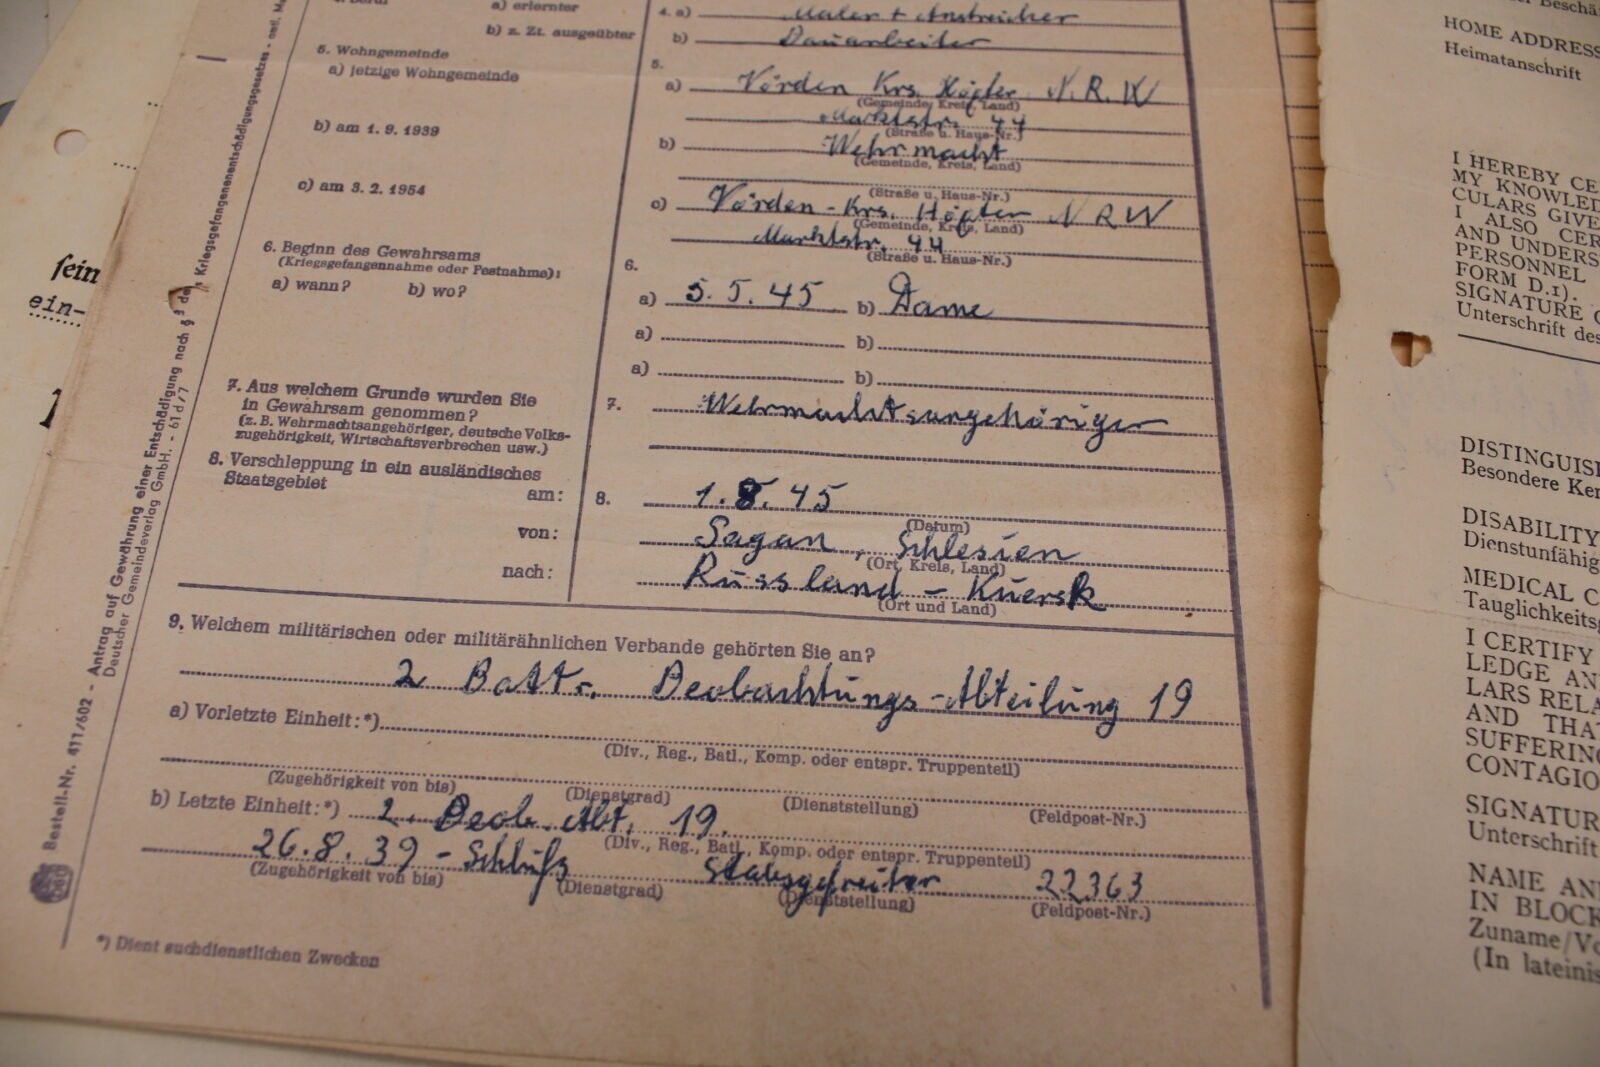 4. Beruf a) erlernter 4. a) Maler + Anstreicher
b) z. Zt. ausgeübter b) Bauarbeiter
5. Wohngemeinde 5.
a) jetzige Wohngemeinde a) Vörden Krs. Höxter N.R.W
(Gemeinde, Kreis, Land)
Marktstr. 44
(Straße u. Haus-Nr.)
b) am 1. 9. 1939 b) Wehrmacht
(Gemeinde, Kreis, Land)
(Straße u. Haus-Nr.)
c) am 3. 2. 1954 c) Vörden - Krs. Höxter N R W
(Gemeinde, Kreis, Land)
Marktstr. 44
(Straße u. Haus-Nr.)
6. Beginn des Gewahrsams 6.
(Kriegsgefangennahme oder Festnahme):
a) wann? b) wo? a) 5. 5. 45 b) Dame
a) b)
a) b)
7. Aus welchem Grunde wurden Sie 7. Wehrmachtsangehöriger
in Gewahrsam genommen?
(z. B. Wehrmachtsangehöriger, deutsche Volks-
zugehörigkeit, Wirtschaftsverbrechen usw.)
8. Verschleppung in ein ausländisches
Staatsgebiet
am: 8. 1. 8. 45
(Datum)
von: Sagan, Schlesien
(Ort, Kreis, Land)
nach: Russland - Kuersk
(Ort und Land)
9. Welchem militärischen oder militärähnlichen Verbande gehörten Sie an?
2 Battr. Beobachtungs-Abteilung 19
a) Vorletzte Einheit:*)
(Div., Reg., Batl., Komp. oder entspr. Truppenteil)
(Zugehörigkeit von bis) (Dienstgrad) (Dienststellung) (Feldpost-Nr.)
b) Letzte Einheit:*) 2. Beob. Abt. 19.
(Div., Reg., Batl., Komp. oder entspr. Truppenteil)
26.8.39 - Schluß Stabsgefreiter 22363
(Zugehörigkeit von bis) (Dienstgrad) (Dienststellung) (Feldpost-Nr.)
*) Dient suchdienstlichen Zwecken
Bestell-Nr. 411/602 - Antrag auf Gewährung einer Entschädigung nach § 3 des Kriegsgefangenenentschädigungsgesetzes - amtl.
Deutscher Gemeindeverlag GmbH. - 61 d/7
sein
ein-
HOME ADDRESS
Heimatanschrift
I HEREBY CE
MY KNOWLED
CULARS GIVE
I ALSO CER
AND UNDERS
PERSONNEL
FORM D.1).
SIGNATURE O
Unterschrift des
DISTINGUIS
Besondere Ken
DISABILITY
Dienstunfähig
MEDICAL C
Tauglichkeits
I CERTIFY
LEDGE AN
LARS RELA
AND THA
SUFFERING
CONTAGIO
SIGNATUR
Unterschrift
NAME AN
IN BLOCK
Zuname/Vo
(In lateinis